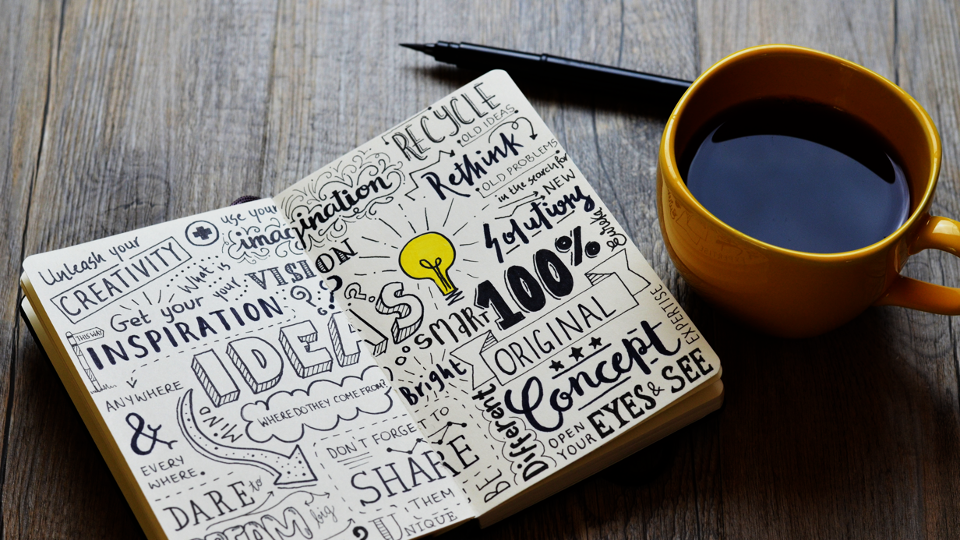 Unleash your
CREATIVITY
use your
imagination
What is
your VISION
?
Get your
THIS WAY
INSPIRATION
ANYWHERE
&
EVERY
WHERE.
IDEAS
MIND
WHERE DO THEY COME FROM?
DON'T FORGET
TO
SHARE
THEM
UNIQUE
DARE to
DREAM big
RECYCLE
OLD IDEAS
Rethink
OLD PROBLEMS
in the search for
NEW
Solutions
100%
SMART
ORIGINAL
Bright
Concept
EXPERTISE
BE
Different
OPEN
YOUR EYES & SEE